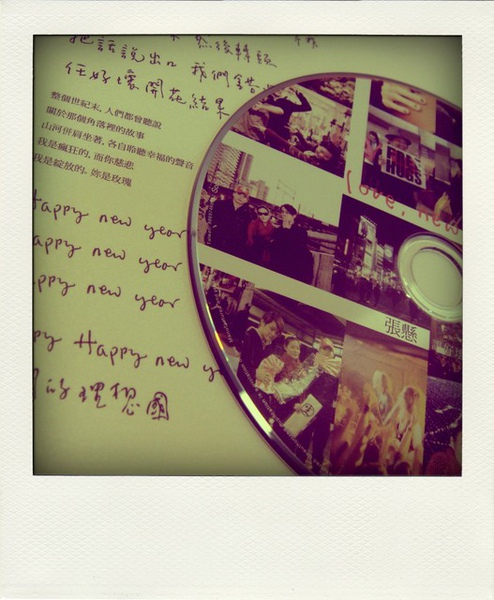 把話說出口 然後轉頭
任好壞開花結果 我們錯
整個世紀末，人們都曾聽說
關於那個角落裡的故事
山河併肩坐著，各自聆聽幸福的聲音
我是瘋狂的，而你慈悲
我是綻放的，妳是玫瑰
Happy new year
appy new year
ppy new year
py Happy new y
的理想國
love, new
張懸